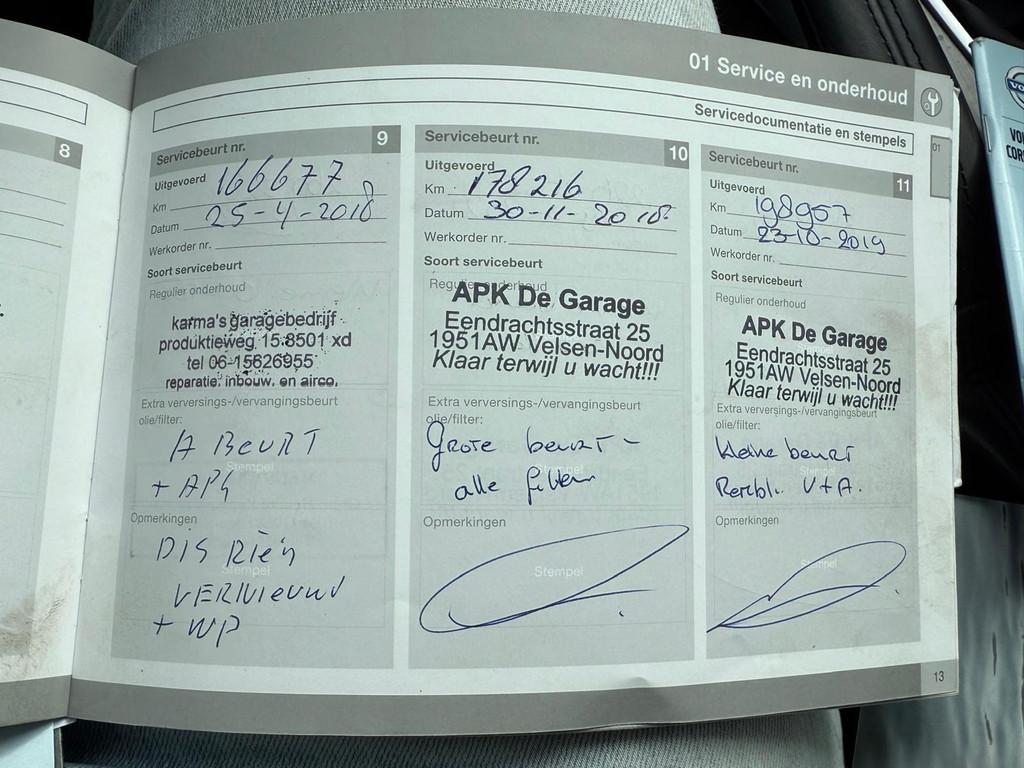 01 Service en onderhoud
Servicedocumentatie en stempels
01
8
Servicebeurt nr. 9
Uitgevoerd
Km 166677
Datum 25-4-2018
Werkorder nr.
Soort servicebeurt
Regulier onderhoud
karma's garagebedrijf
produktieweg 15.8501 xd
tel 06-15626955
reparatie. inbouw. en airco.
Extra verversings-/vervangingsbeurt
olie/filter:
A BEURT
Stempel
+ APK
Opmerkingen
DIS RIEM
Stempel
VERNIEUWD
+ WP
Servicebeurt nr. 10
Uitgevoerd
Km 178216
Datum 30-11-2018.
Werkorder nr.
Soort servicebeurt
Regulier onderhoud
APK De Garage
Eendrachtsstraat 25
1951AW Velsen-Noord
Klaar terwijl u wacht!!!
Extra verversings-/vervangingsbeurt
olie/filter:
Grote beurt -
Stempel
alle filters
Opmerkingen
Stempel
Servicebeurt nr. 11
Uitgevoerd
Km 198907
Datum 23-10-2019
Werkorder nr.
Soort servicebeurt
Regulier onderhoud
APK De Garage
Eendrachtsstraat 25
1951AW Velsen-Noord
Klaar terwijl u wacht!!!
Extra verversings-/vervangingsbeurt
olie/filter:
Kleine beurt
Stempel
Rembl. V+A.
Opmerkingen
Stempel
13